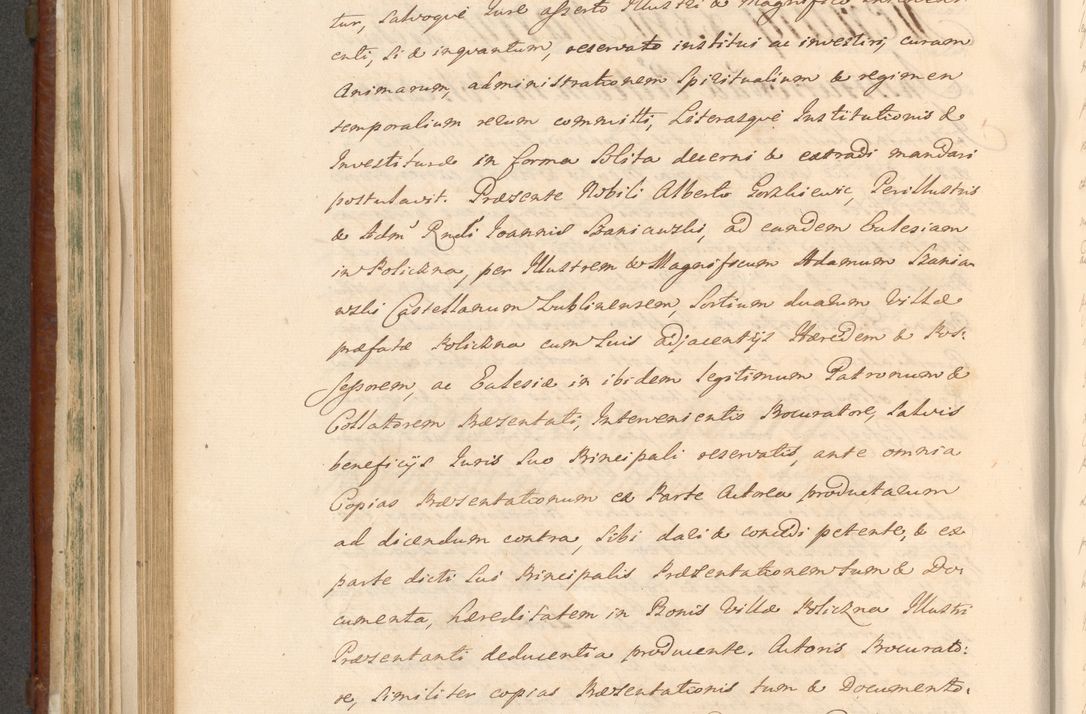 tur, Salvoque Jure asserto Illustri & Magnifico
centi, Si & inquantum, reservato institui ac investiri, curam
Animarum, administrationem Spiritualium & regimen
temporalium rerum committi, Literasque Institutionis &
Investituræ in forma Solita decerni & extradi mandari
postulavit. Præsente Nobili Alberto Gorzkiewic, Perillustris
& Adm: Rndi Joannis Szaniawski, ad eandem Eclesiam
in Policzna, per Illustrem & Magnificum Adamum Szania-
wski Castellanum Lublinensem, Sortium duarum Villæ
præfatæ Policzna cum Suis adjacentijs Hæredem & Pos:
sessorem, ac Eclesiæ in ibidem legitimum Patronum &
Collatorem Præsentati, Intervenientis Procuratore, Salvis
beneficijs Juris Suo Principali reservatis, ante omnia
Copias Præsentationum ex Parte Actorea productarum
ad dicendum contra, Sibi dari & concedi petente, & ex
parte dicti Sui Principalis Præsentationem Suam & Do:
cumenta, hæreditatem in Bonis Villæ Policzna Illustri
Præsentanti deducentia producente. Actoris Procurato:
re, Similiter copias Præsentationis tum & Documento: